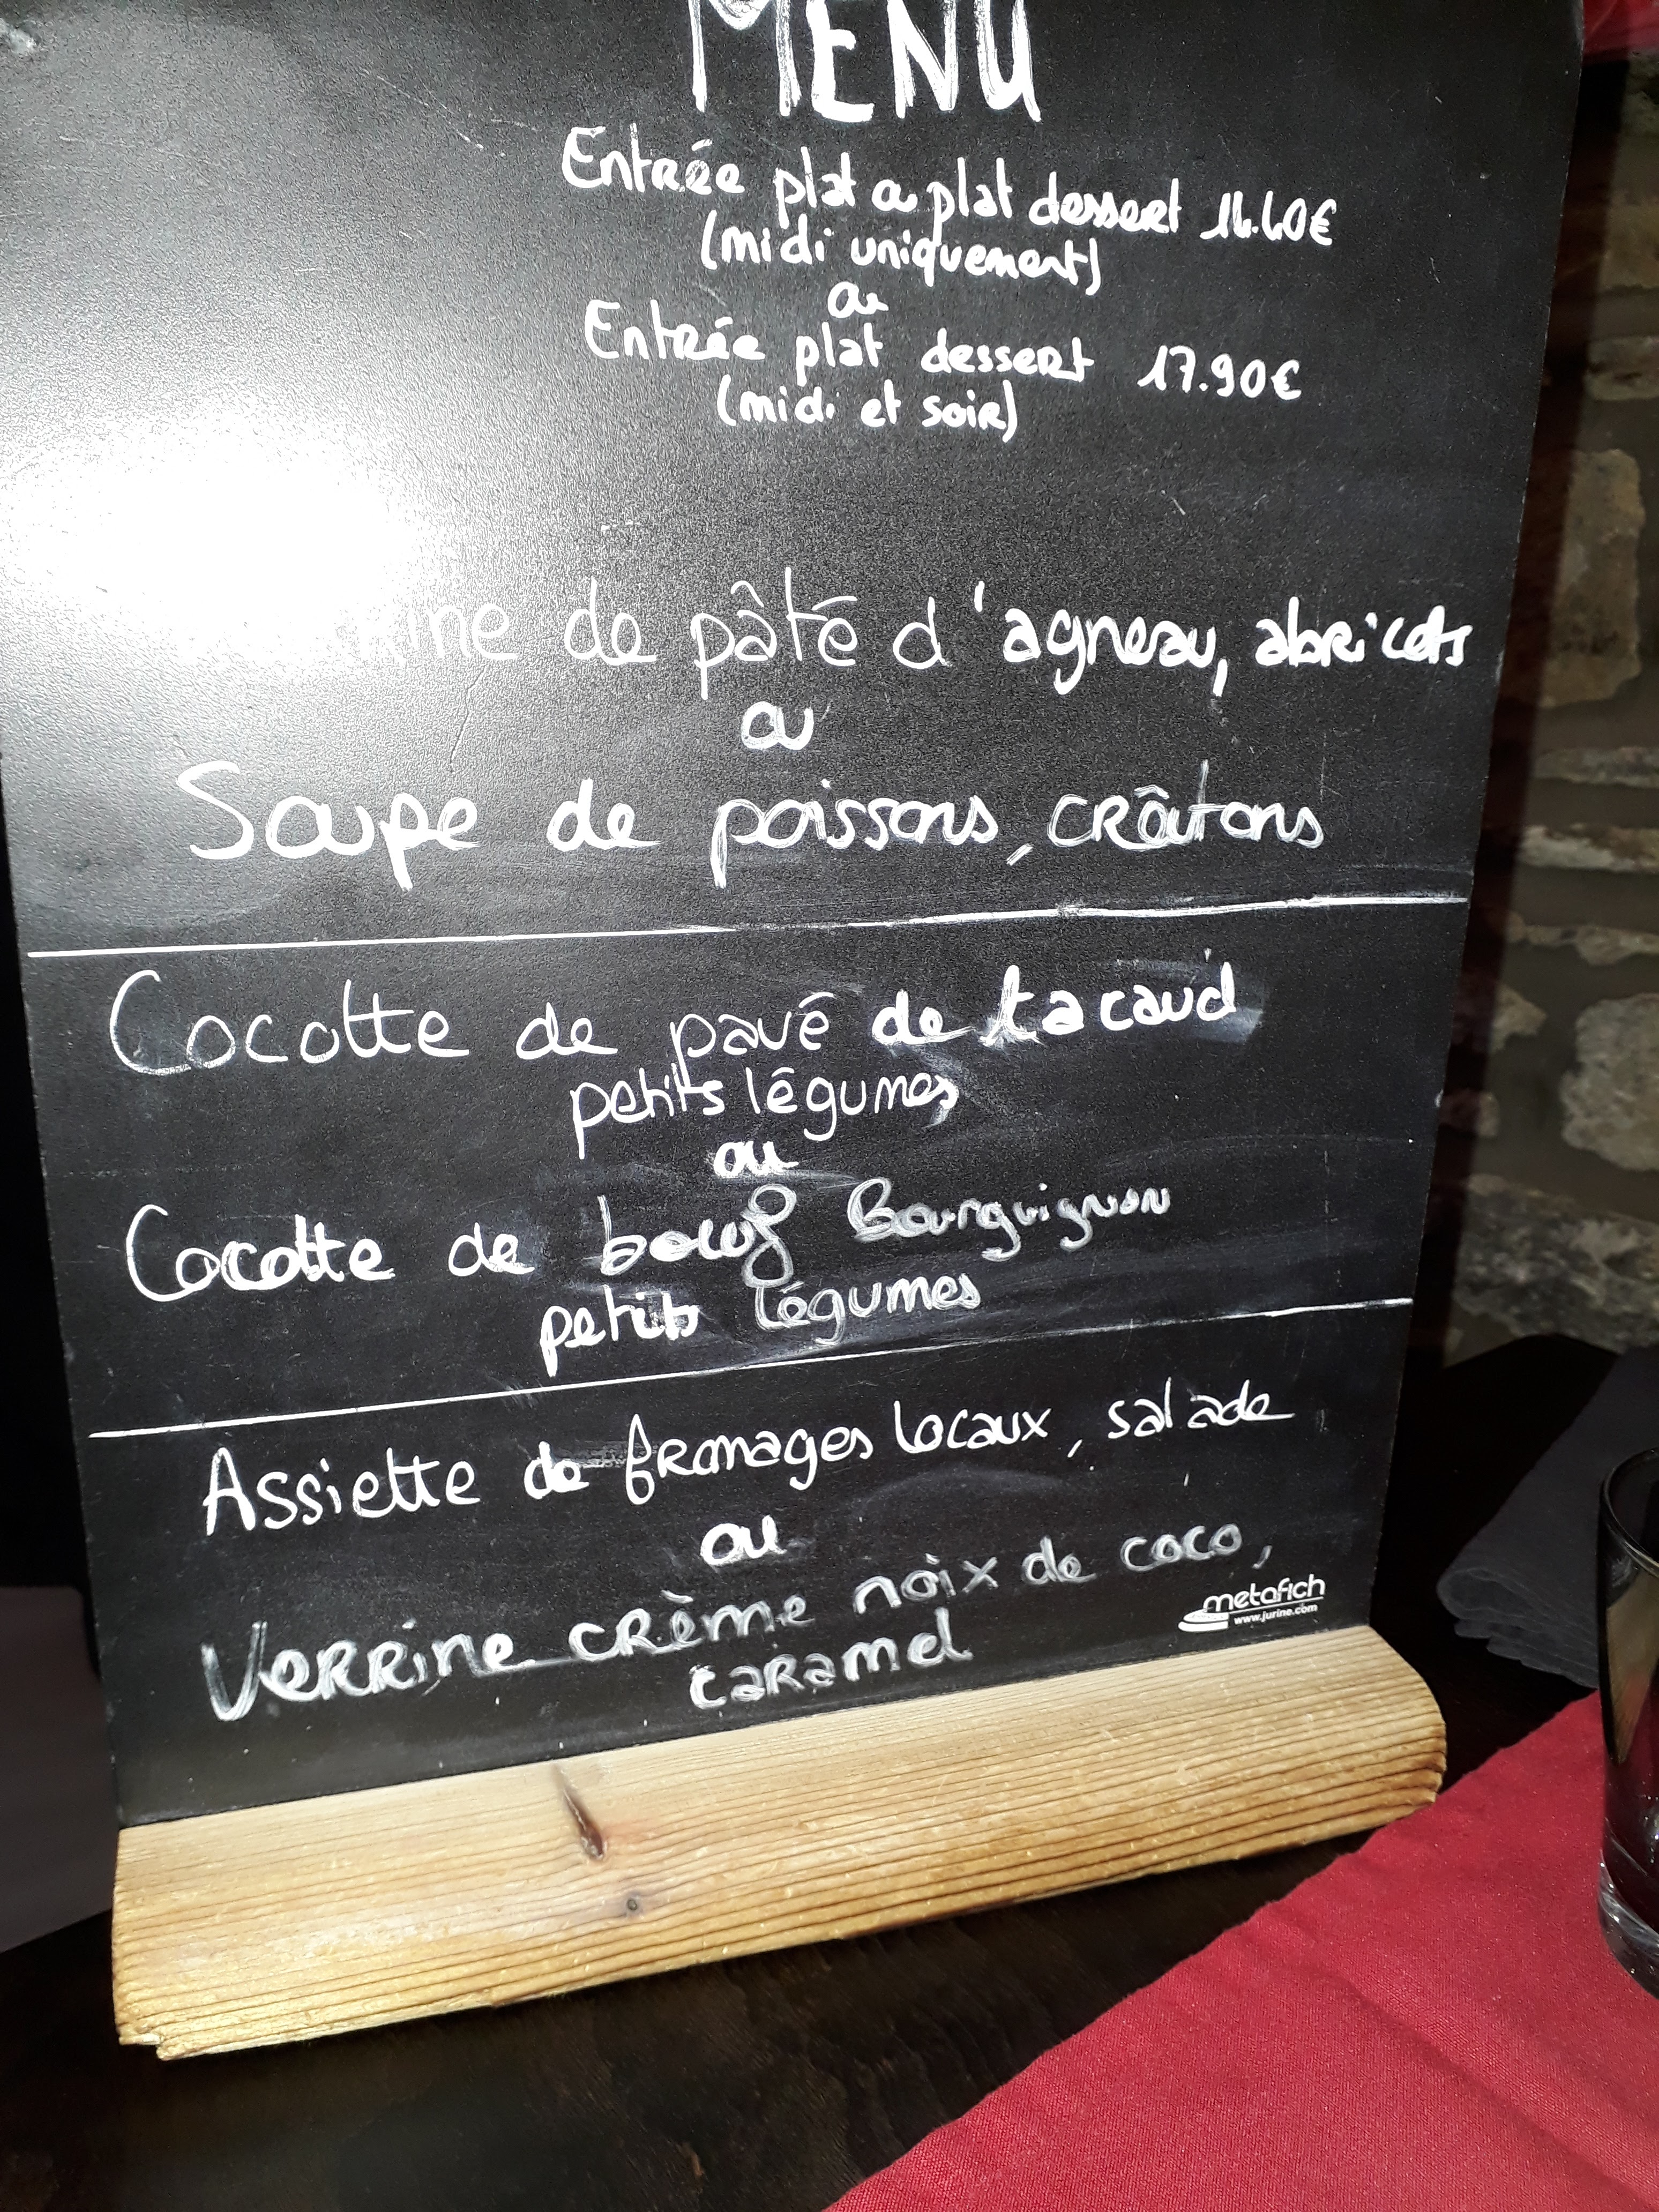 MENU
Entrée plat ou plat dessert
(midi uniquement)
ou
Entrée plat dessert 17.90€
(midi et soir)
de pâté d'agneau, abricots
ou
Soupe de poissons, croûtons
Cocotte de pavé de tacaud
petits légumes
ou
Cocotte de boeuf Bourguignon
petits légumes
Assiette de fromages locaux, salade
ou
Verrine crème noix de coco,
caramel
metafich
www.jurine.com